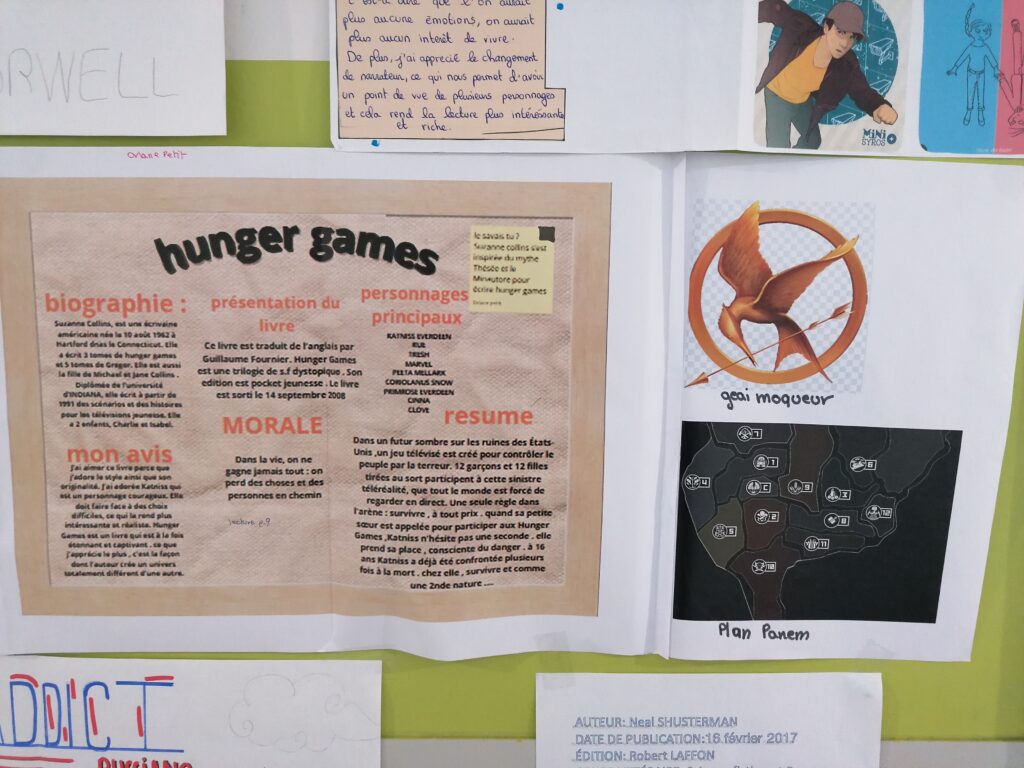 ORWELL
plus aucune émotions, on aurait
plus aucun interêt de vivre.
De plus, j'ai apprecié le changement
de narrateur, ce qui nous permet d'avoir
un point de vue de plusieurs personnages
et cela rend la lecture plus intéréssante
et riche.
MiNi
SYROS +
Oriane Petit
hunger games
le savais tu ?
Suzanne collins s'est
inspirée du mythe
Thésée et le
Minautore pour
écrire hunger games
Oriane petit
biographie :
Suzanne Collins, est une écrivaine
américaine née le 10 août 1962 à
Hartford dnas le Connecticut. Elle
a écrit 3 tomes de hunger games
et 5 tomes de Gregor. Elle est aussi
la fille de Michael et Jane Collins .
Diplômée de l'université
d'INDIANA, elle écrit à partir de
1991 des scénarios et des histoires
pour les télévisions jeunesse. Elle
a 2 enfants, Charlie et Isabel.
mon avis
J'ai aimer ce livre parce que
j'adore le style ainsi que son
originalité. J'ai adorée Katniss qui
est un personnage courageux. Elle
doit faire face à des choix
difficiles, ce qui la rend plus
intéressante et réaliste. Hunger
Games est un livre qui est à la fois
étonnant et captivant . ce que
j'apprécie le plus , c'est la façon
dont l'auteur crée un univers
totalement différent d'une autre.
présentation du
livre
Ce livre est traduit de l'anglais par
Guillaume Fournier. Hunger Games
est une trilogie de s.f dystopique . Son
edition est pocket jeunesse . Le livre
est sorti le 14 septembre 2008
MORALE
Dans la vie, on ne
gagne jamais tout : on
perd des choses et des
personnes en chemin
lecture p.9
personnages
principaux
KATNISS EVERDEEN
RUE
TRESH
MARVEL
PEETA MELLARK
CORIOLANUS SNOW
PRIMROSE EVERDEEN
CINNA
CLOVE
resume
Dans un futur sombre sur les ruines des États-
Unis ,un jeu télévisé est créé pour contrôler le
peuple par la terreur. 12 garçons et 12 filles
tirées au sort participent à cette sinistre
téléréalité, que tout le monde est forcé de
regarder en direct. Une seule règle dans
l'arène : survivre , à tout prix . quand sa petite
sœur est appelée pour participer aux Hunger
Games ,Katniss n'hésite pas une seconde . elle
prend sa place , consciente du danger . à 16
ans Katniss a déjà été confrontée plusieurs
fois à la mort . chez elle , survivre et comme
une 2nde nature ....
geai moqueur
7
1
6
4
C
9
3
12
5
2
8
11
10
Plan Panem
ADDICT
AUTEUR: Neal SHUSTERMAN
DATE DE PUBLICATION:16 février 2017
ÉDITION: Robert LAFFON